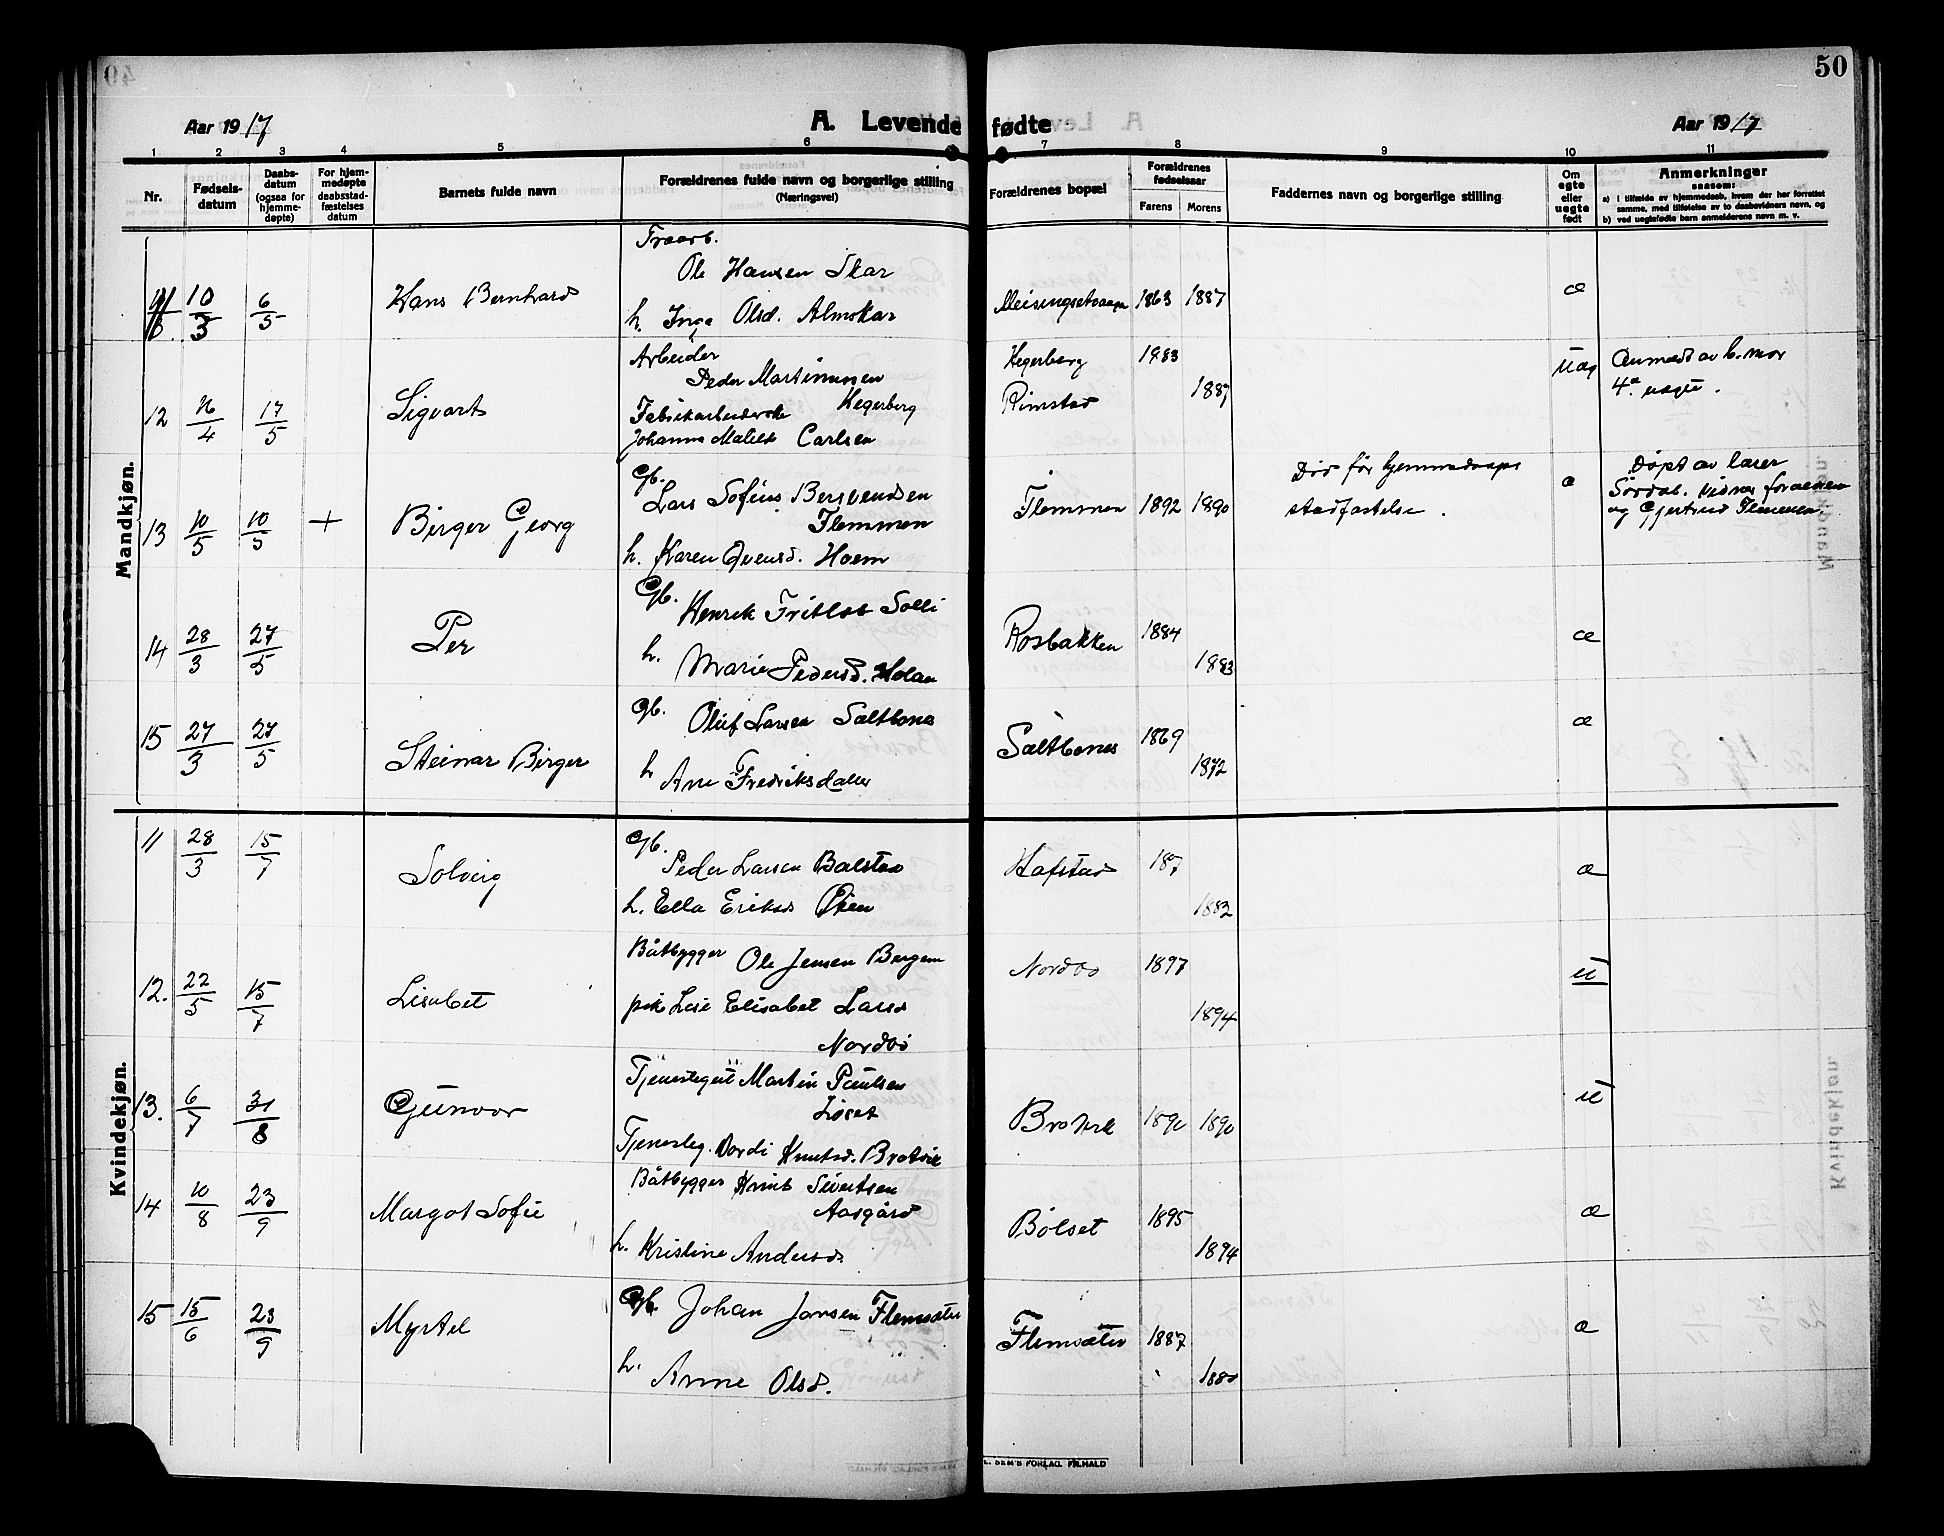 50
Aar 1917 A. Levende fødte Aar 1917
1 2 3 4 5 6 7 8 9 10 11
Nr. Fødsels-datum Daabs-datum (ogsaa for hjemme-døpte) For hjem-medøpte daabsstad-fæstelses datum Barnets fulde navn Forældrenes fulde navn og borgerlige stilling (Næringsvei) Forældrenes bopæl Forældrenes fødselsaar Farens Morens Faddernes navn og borgerlige stilling Om egte eller uegte født Anmerkninger saasom:
a) i tilfælde av hjemmedaab, hvem der har forrettet samme, med tilføielse av to daabsvidners navn, og
b) ved uegtefødte barn anmelderens navn m. v.
Mandkjøn.
10/3 6/5 Hans Bernhard
Ole Hansen Skar
h. Inga Olsd. Almskar
1863 1887 æ
12 17/5 Sigvart
Arbeider
Peder Martinussen
Hegerberg
Fabrikarbeiderske
Carlsen
Hegerberg 1883
Rimstad 1887
Anmeldt av b. mor
4de uegte.
13 10/5 10/5 + Birger Georg
Gb.
Lars Sofius Bersvendsen
Flemmen
h. Karen Evensd. Hoem
Flemmen 1892 1890
Død før hjemmedaaps
stadfæstelse.
æ
Døpt av lærer
Sørdal. Vidner forældrene
og Gjertrud Flemmen.
14 28/3 27/5 Per
Gb.
Henrik Solli
h.
Marie Pedersd. Holan
Rosbakken 1884 1883 æ
15 27/3 27/5 Steinar Birger
Gb. Oluf Larsen Saltbones
h Ane
Saltbones 1869 1872 æ
Kvindekjøn.
11 28/3 15/7 Solveig
Gb.
Peder Larsen Balstad
h. Ella Eriksd Øien
Hafstad 187 1882 æ
12. 22/5 15/7 Lisabet
Båtbygger Ole Jensen Bergem
pike Lise Elisabet Larsd
Nordbø
1897 1894 u
13. 6/7 31/8 Gunvor
Martin Paulsen
Løset
Tjenesteg. Knutsd. Bratvik
1890 u
14 10/8 23/9 Margot Sofie
Båtbygger Knut Sivertsen
Aasgård
h. Kristine Andersd.
Bølset 1895 1894 æ
15 15/6 23/9 Myrtel
Gb. Johan Jansen Flemsæter
h. Anne Olsd.
Flemsæter 1887 æ
FORLAG. FR.HALD